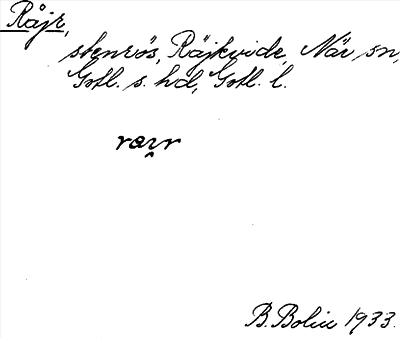 Räjr,
stenrös, Räjkvide, När sn,
Gotl. s. hd, Gotl. l.
raı̯r
B. Bolin 1933.